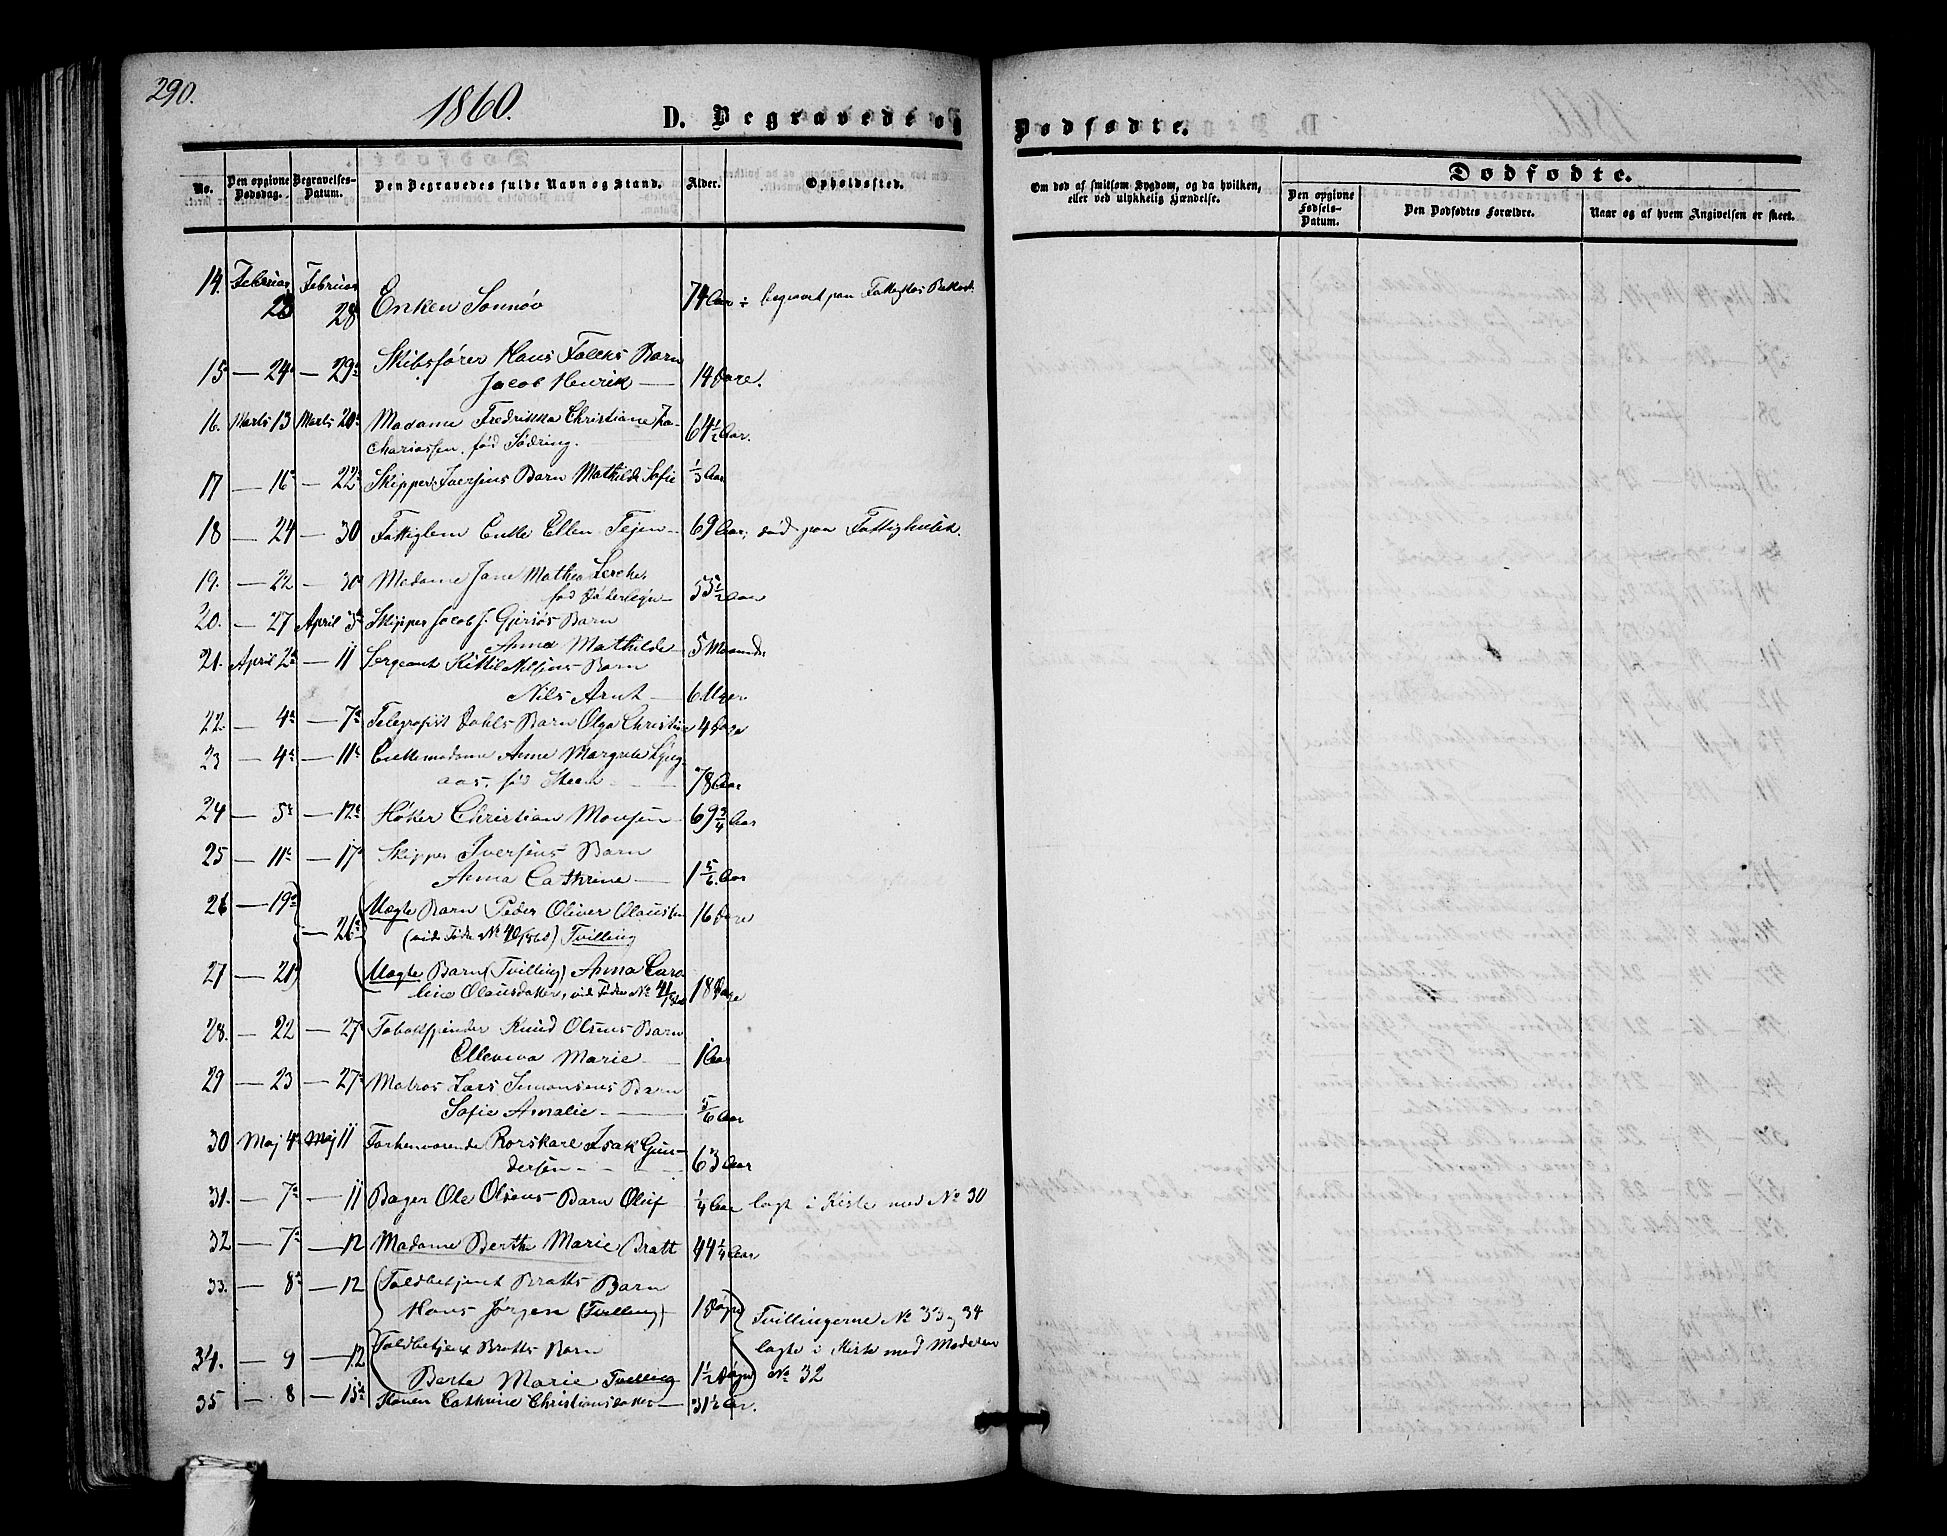 290.
1860.
D. Begravede og Dødfødte.
No.
Den opgivne Dødsdag.
Begravelses-Datum.
Den Begravedes fulde Navn og Stand.
Alder.
Opholdssted.
Om død af smitsom Sygdom, og da hvilken, eller ved ulykkelig Hændelse.
Dødfødte.
Den opgivne Fødsels-Datum.
Den Dødfødtes Forældre.
Naar og af hvem Angivelsen er skeet.
14. Februar 23 Februar 28 Enken Sonnøv 74 Aar begravet paa Fattigfos
15 — 24 — 29 Skibsfører Hans Falcks Barn
Jacob Henrik — 14 Dage.
16. Marts 13 Marts 20 Madame Fredrikka Christiane Za-
chariassen, fød Sødring. 64½ Aar.
17 — 16 — 22 Skipper Iversens Barn Mathilde Sofie ⅓ Aar
18 — 24 — 30 Fattiglem Enke Ellen Tejen — 69 Aar, død paa Fattighuset.
19. — 22 — 30 Madame Jane Mathea Lerche,
fød — 55½ Aar
20. — 27 April 3 Skipper Jacob J. Gjersøs Barn
Anna Mathilde — 5 Maaneder
21. April 2 — 11 Sergeant Kittil Nilsens Barn
Nils Arnt — 6 Uger
22. — 4 — 7 Telegrafist Dahls Barn Olga Christine 4 Dage
23 — 4 — 11 Enkemadame Anne Margrete Lyng-
aas, fød Steen — 78 Aar
24 — 5 — 12 Høker Christian Monsen — 69¾ Aar
25 — 11 — 17 Skipper Iversens Barn
Anna Cathrine — 1⅚ Aar
26 — 19 — 26 Uægte Barn Peder Oliver Olaussen 16 Dage
(vide Fødte No 40/1860) Tvilling
27 — 21 Uægte Barn (Tvilling) Anna Caro-
line Olausdatter, vide Fødte No 41/1860 18 Dage
28. — 22 — 27 Tobakspinder Knud Olsens Barn
Ellevina Marie — 1 Aar
29 — 23 — 27 Matros Lars Simonsens Barn
Sofie Amalie — ⅚ Aar
30 Maj 4 Maj 11 Forhenværende Rorskarl Isak Gun-
dersen — 63 Aar
31. — 7 — 11 Bager Ole Olsens Barn Oluf ¼ Aar lagt i Kiste med No 30
32 — 7 — 12 Madame Berthe Marie Bratt 44¼ Aar
33. — 8 — 12 Toldbetjent Bratts Barn
Hans Jørgen (Tvilling) 1 Døgn Tvillingerne No 33 og 34
34. — 9 — 12 Toldbetjent Bratts Barn lagte i Kiste med Moderen
Berte Marie Tvilling 1½ Døgn No 32
35 — 8 — 15 Konen Cathrine Christiansdatter — 31½ Aar.